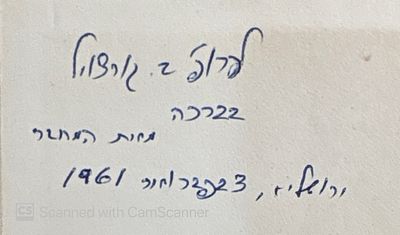 לפרופ' ב.
בברכה
מאת המחבר
ירושלים, 23 בפברואר 1961
CS Scanned with CamScanner